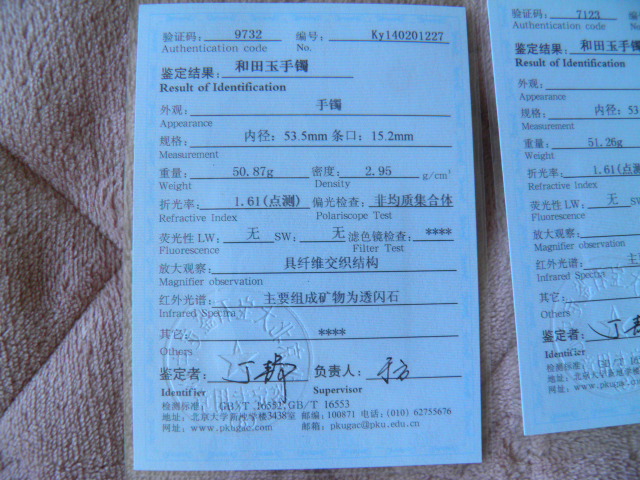 验证码: 9732 编号: Ky140201227
Authentication code No.
鉴定结果: 和田玉手镯
Result of Identification
外观: 手镯
Appearance
规格: 内径: 53.5mm 条口: 15.2mm
Measurement
重量: 50.87g 密度: 2.95 g/cm³
Weight Density
折光率: 1.61(点测) 偏光检查: 非均质集合体
Refractive Index Polariscope Test
荧光性 LW: 无 SW: 无 滤色镜检查: ****
Fluorescence Filter Test
放大观察: 具纤维交织结构
Magnifier observation
红外光谱: 主要组成矿物为透闪石
Infrared Spectra
其它: ****
Others
鉴定者: 负责人:
Identifier Supervisor
检测标准: GB/T 16552,GB/T 16553
地址: 北京大学新地学楼3438室 邮编: 100871 电话: (010) 62755676
网址: www.pkugac.com 邮箱: pkugac@pku.edu.cn
验证码: 7123
Authentication code
鉴定结果: 和田玉手
Result of Identification
外观:
Appearance
规格: 内径: 53
Measurement
重量: 51.26g
Weight
折光率: 1.61(点
Refractive Index
荧光性 LW: 无 S
Fluorescence
放大观察:
Magnifier observation
红外光谱: 主要
Infrared Spectra
其它:
Others
鉴定者:
Identifier
检测标准: GB/T
地址: 北京大学新地学楼
网址: www.pkugac.